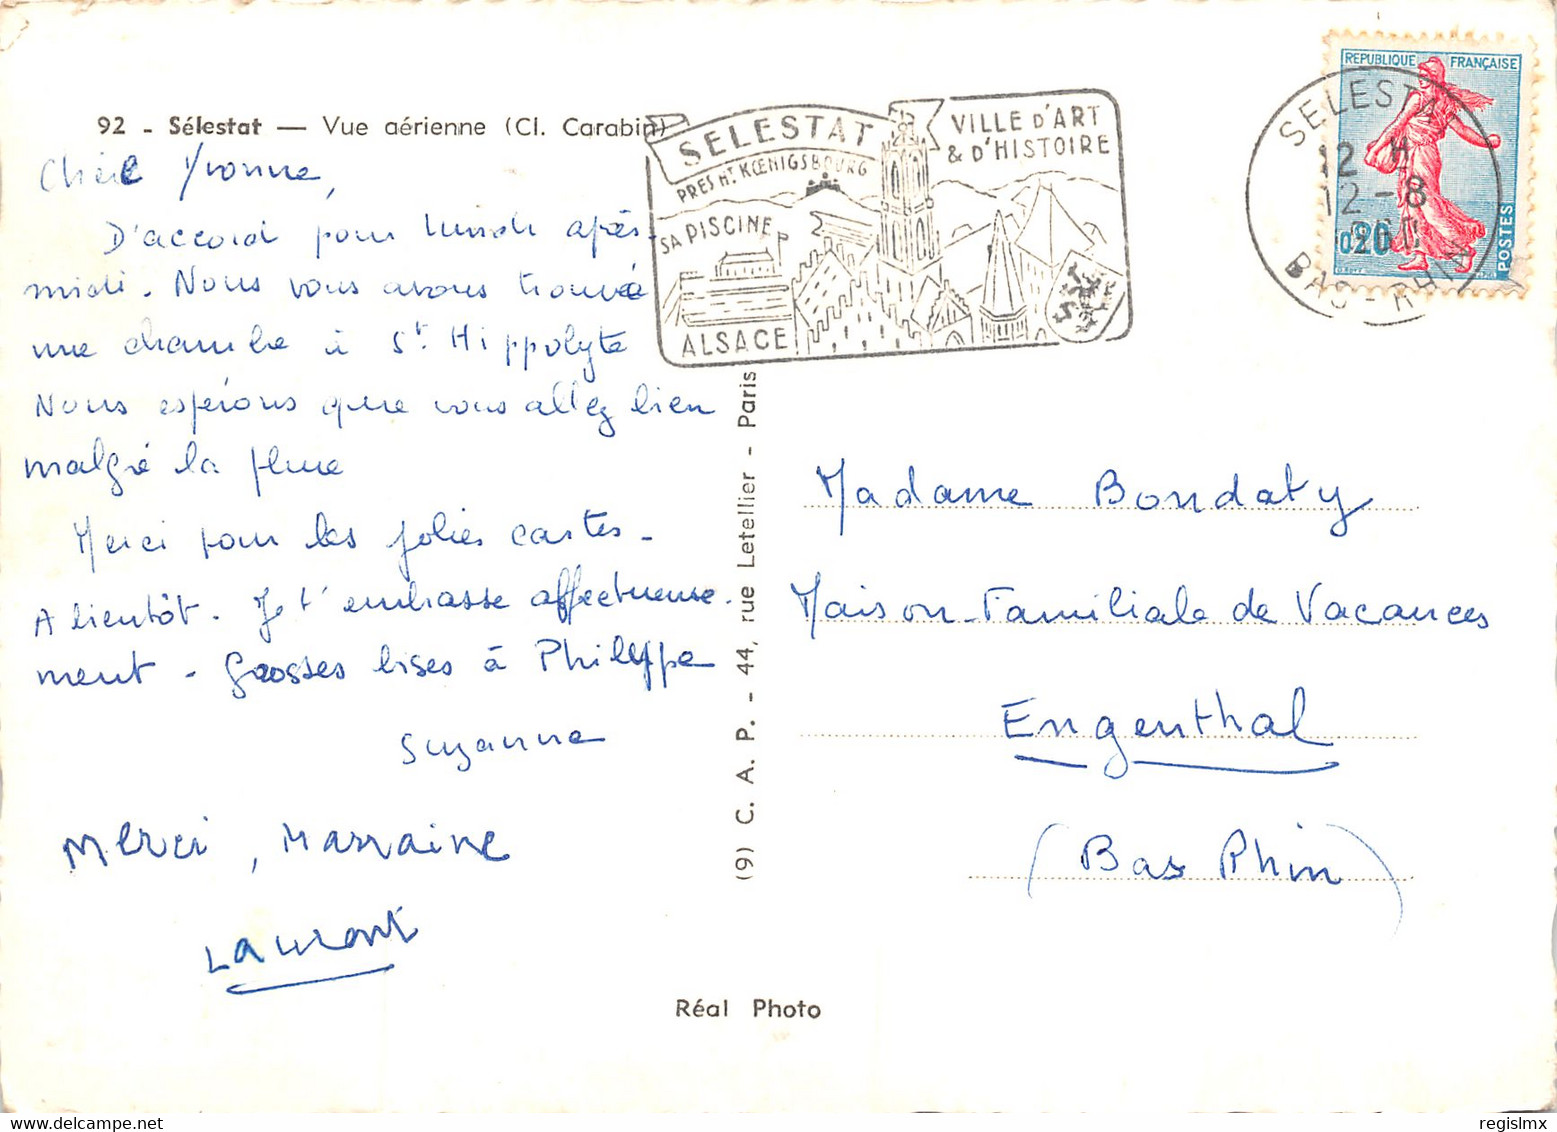 92 - Sélestat — Vue aérienne (Cl. Carabin)
Chère Yvonne,
D'accord pour lundi après-
midi. Nous vous avons trouvé
une chambre à St Hippolyte
Nous espérons que vous allez bien
malgré la pluie
Merci pour les jolies cartes -
A bientôt. Je t'embrasse affectueuse-
ment - Grosses bises à Philippe
Suzanne
Merci, Marraine
Laurent
SELESTAT
PRES HT KŒNIGSBOURG
SA PISCINE
ALSACE
VILLE D'ART
& D'HISTOIRE
REPUBLIQUE FRANÇAISE
0,20
POSTES
SELESTAT
12 H
12-8
BAS-RHIN
(9) C. A. P. - 44, rue Letellier - Paris
Madame Bondaty
Maison Familiale de Vacances
Engenthal
(Bas Rhin)
Réal Photo
regislmx